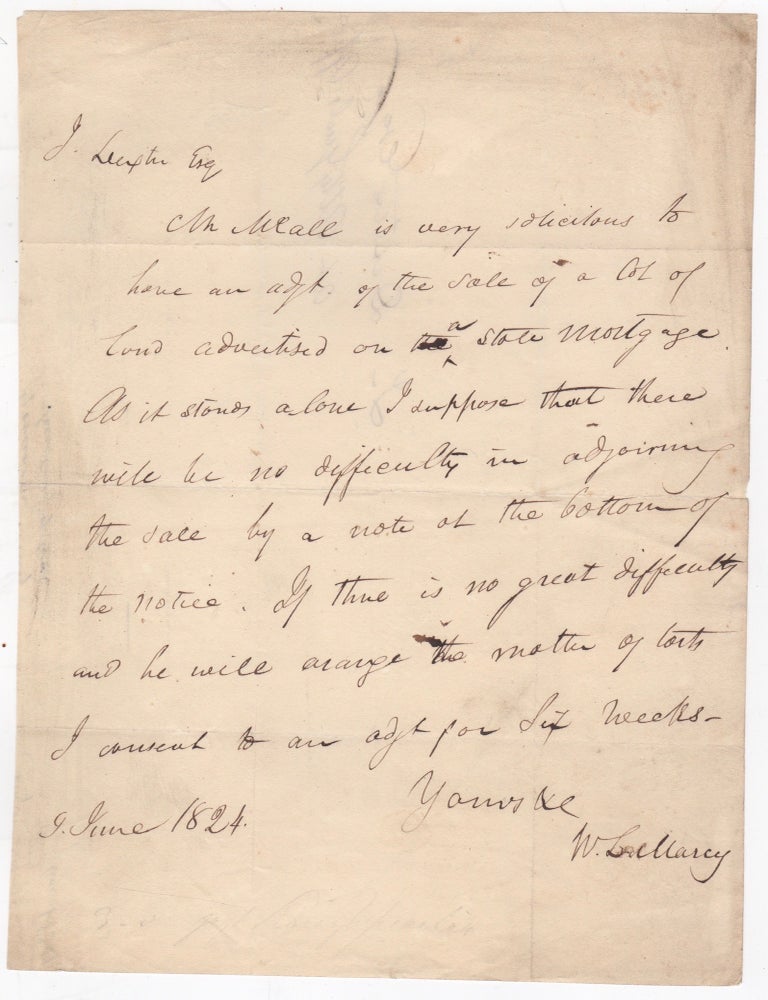 J. Dexter Esq
Mr McCall is very solicitous to
have an adjt. of the sale of a lot of
land advertised on a State Mortgage.
As it stands alone I suppose that there
will be no difficulty in adjoirning
the sale by a note at the bottom of
the notice. If there is no great difficulty
and he will arange the matter of costs
I consent to an adjt for Six weeks—
Yours &c
9. June 1824.
W. L. Marcy